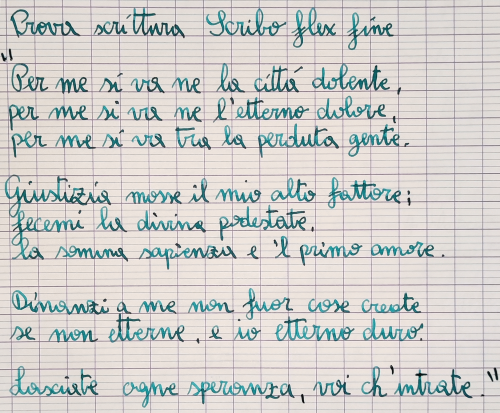 Prova scrittura Scribo flex fine
"Per me si va ne la cittá dolente,
per me si va ne l'etterno dolore,
per me si va tra la perduta gente.
Giustizia mosse il mio alto fattore;
fecemi la divina podestate,
la somma sapienza e 'l primo amore.
Dinanzi a me non fuor cose create
se non etterne, e io etterno duro.
Lasciate ogne speranza, voi ch'intrate."